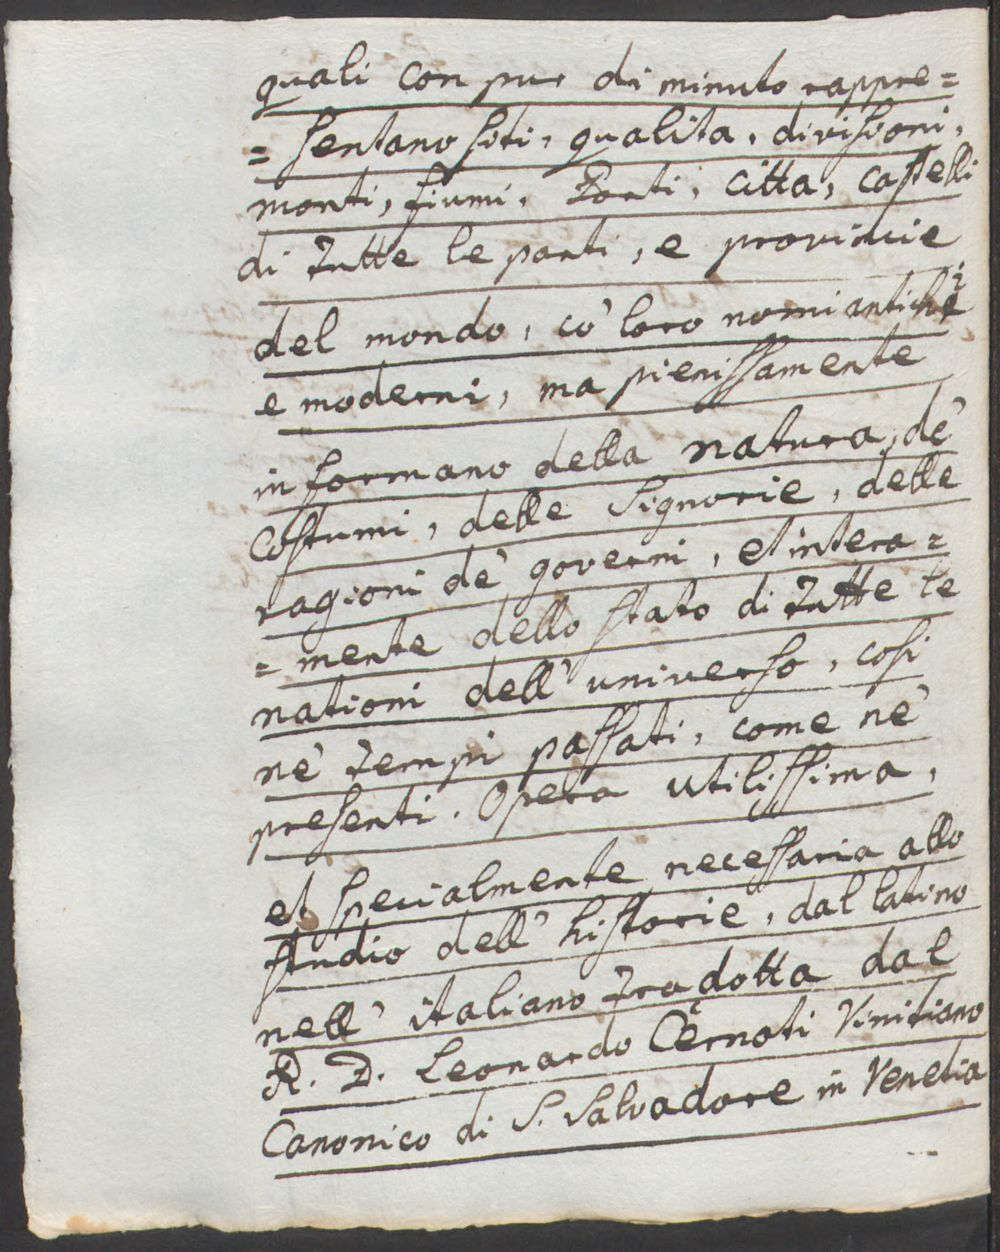 quali con pur di minuto rappre=
= sentano siti, qualita, divisioni,
monti, fiumi, Fonti, citta, castelli
di tutte le parti, e provincie
del mondo, co' loro nomi antichi
e moderni, ma pienissamente
informano della natura, de'
costumi, delle Signorie, delle
ragioni de' governi, et intera=
= mente dello stato di tutte le
nationi dell' universo, cosi
ne' tempi passati, come ne'
presenti. Opera utilissima,
et specialmente necessaria allo
studio dell' historie, dal latino
nell' italiano tradotta dal
R. D. Leonardo Cernoti Vinitiano
Canonico di S. Salvadore in Venetia